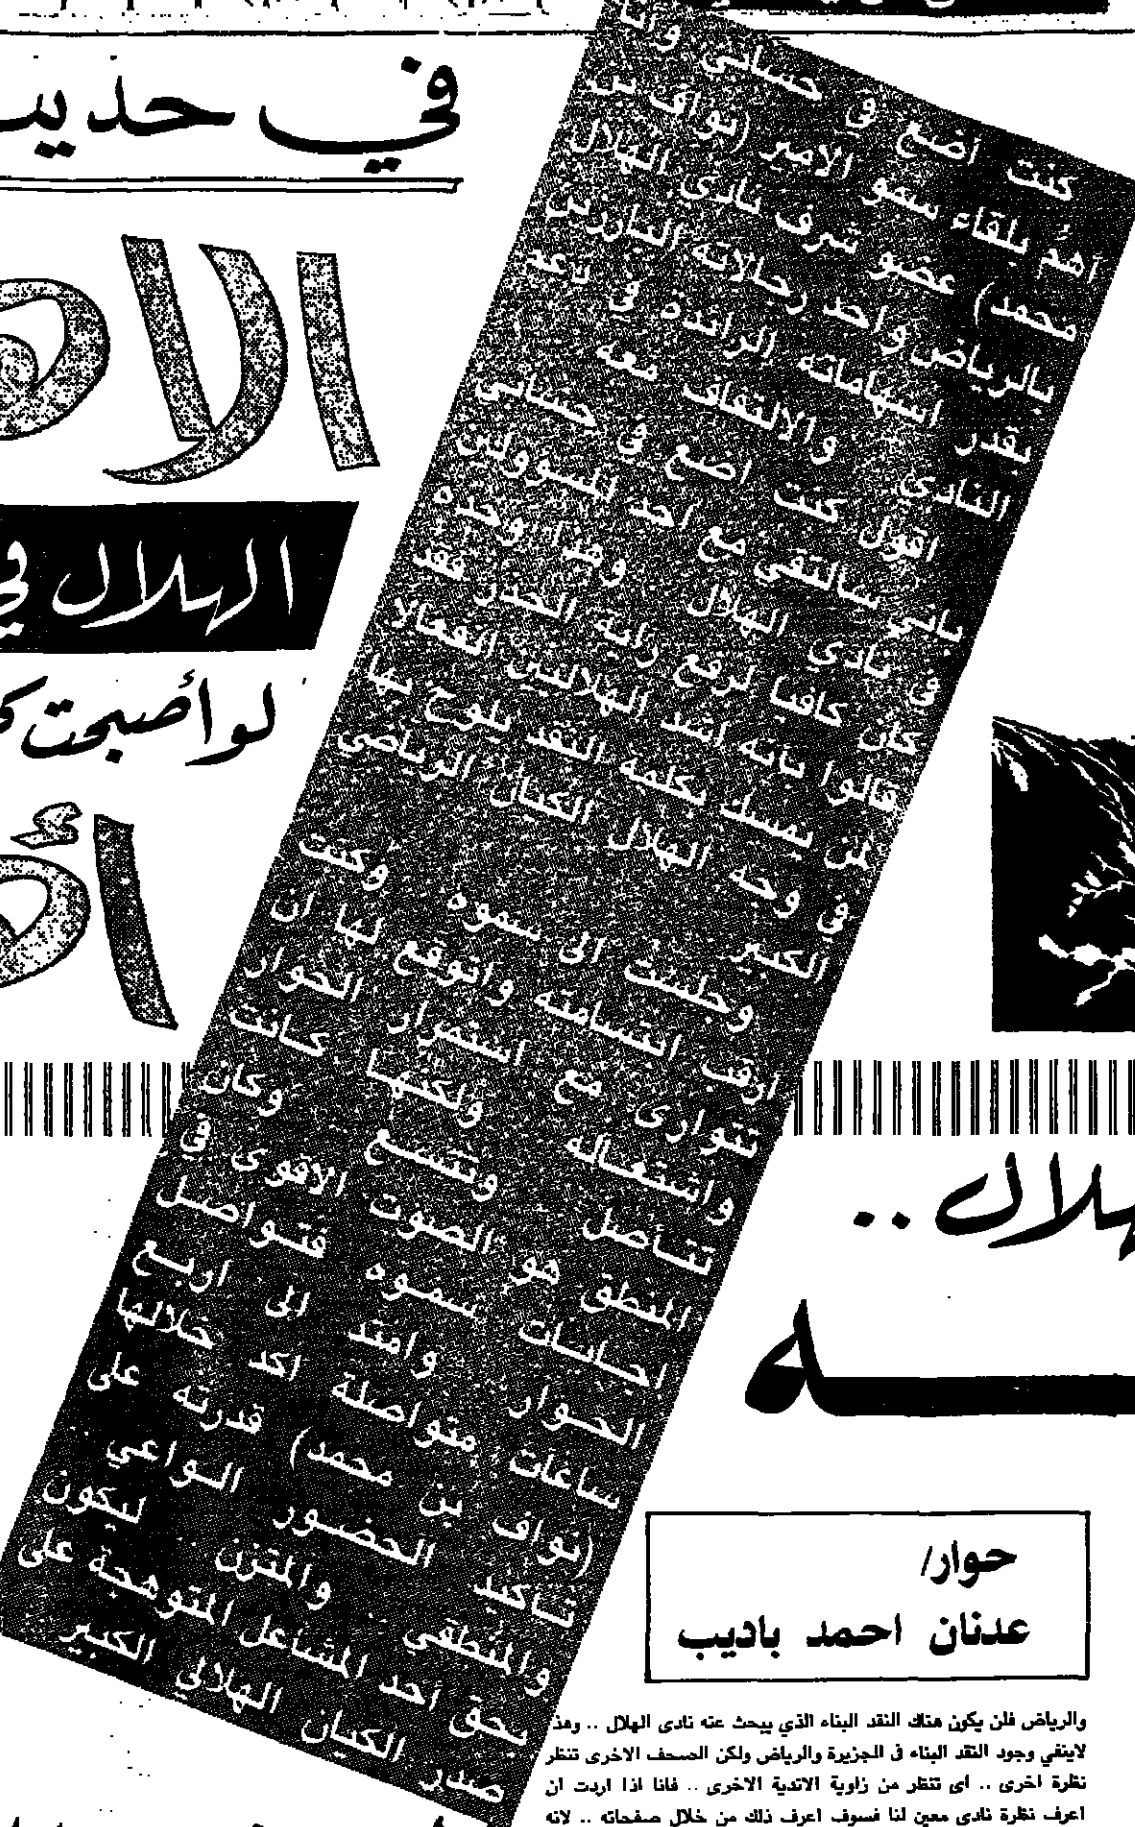 في حديث
الهلال في
لو أصبحت
كنت اضع في حسابي وانا
اهم بلقاء سمو الامير (نواف بن
محمد) عضو شرف نادي الهلال
بالرياض واحد رجالاته البارزين
بقدر اسهاماته الرائدة في
النادي والالتفاف معه
اقول كنت اضع في حسابي
باني سالتقي مع احد المسؤولين
في نادي الهلال وهذا وحده
كان كافيا لرفع راية الحذر فقد
قالوا بأنه اشد الهلاليين انفعالا
لمن يمسك بكلمة النقد يلوح بها
في وجه الهلال الكيان الرياضي
الكبير
وجلست الى سموه وكنت
ارقب ابتسامته واتوقع لها ان
تتوارى مع استمرار الحوار
واشتعاله ولكنها كانت
تتأصل وتتسع وكان
المنطق هو الصوت الاقوى في
اجابات سموه فتواصل
الحوار وامتد الى اربع
ساعات متواصلة اكد خلالها
(نواف بن محمد) قدرته على
تأكيد الحضور الواعي
والمنطقي والمتزن ليكون
بحق احد المشاعل المتوهجة على
صدر الكيان الهلالي الكبير
هلال ..
حوار/
عدنان احمد باديب
والرياض فلن يكون هناك النقد البناء الذي يبحث عنه نادى الهلال .. وهذ
لاينفي وجود النقد البناء في الجزيرة والرياض ولكن الصحف الاخرى تنظر
نظرة اخرى .. اى تنظر من زاوية الاندية الاخرى .. فانا اذا اردت ان
اعرف نظرة نادى معين لنا فسوف اعرف ذلك من خلال صفحاته .. لانه